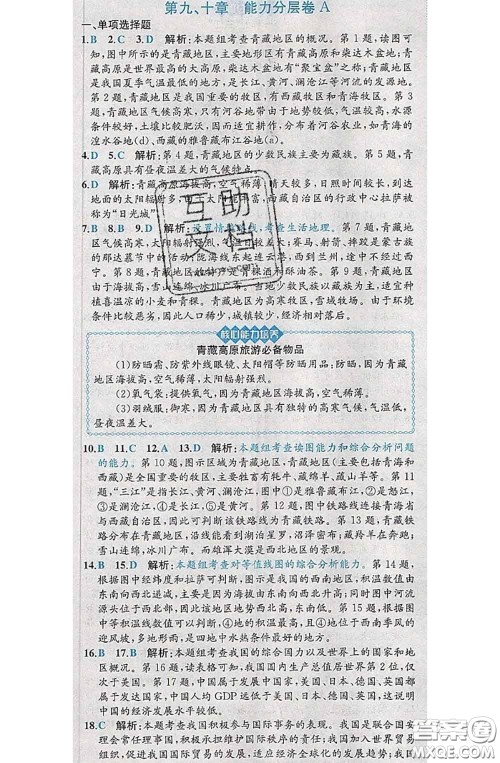 第九、十章　能力分层卷 A
一、单项选择题
1.B　2.C　3.D　解析:本题组考查青藏地区的概况。第1题,读图可
知,图中所示的是青藏地区,主要地形区有青藏高原和柴达木盆地;青
藏高原是世界最高的大高原,柴达木盆地有“聚宝盆”之称;青藏地区
是我国夏季气温最低的地方,是长江、黄河、澜沧江等河流的发源地。
第2题,青藏地区是我国重要的牧区,有西藏牧区和青海牧区。第3
题,青藏地区气候高寒,只有河谷地带由于地势较低,气温较高,水源
条件较好,土壤比较肥沃,因而适宜耕作,分布着河谷农业,如青海的
湟水谷地(d)、西藏的雅鲁藏布江谷地(b)。
4.D　5.C　解析:第4题,青藏地区的少数民族主要为藏族。第5题,青
藏高原具有昼夜温差大的气候特点。
6.D　解析:青藏高原海拔高,空气稀薄,晴天较多,日照时间较长,到达
地面的太阳辐射多,日光充足,西藏自治区的行政中心拉萨被
称为“日光城”。
7.B　8.B　9.D　解析:设置情境考查生活地理。第7题,青藏地
区气候高寒,太阳辐射强烈,
的那达慕大会中的活动;陇海线东起连云港西到兰州,途中不经过西
宁。第8题,青藏地区
种植喜温凉的小麦和青稞。第9题,青藏地区为高寒牧区,雪域牧场。由于环境
条件比较恶劣,因此人口稀少,城镇较少,经济相对较落后。
核心能力培养
青藏高原旅游必备物品
(1)防晒霜、防紫外线眼镜、太阳帽等防晒用品:防晒,因为青藏
地区海拔高,空气稀薄,太阳辐射强烈。
(2)氧气袋:提供氧气,因为青藏地区海拔高,空气稀薄。
(3)羽绒服:御寒,因为青藏地区具有独特的高寒气候,气温低,
昼夜温差大。
10.B　11.C　12.A　13.D　解析:本题组考查读图能力和综合分析问题
的能力。第10题,图示区域为青藏地区,青藏地区(主要包括青海和
西藏)是全国重要的畜牧业基地,主要牲畜有牦牛、藏绵羊、藏山羊等。第
11题,“三江”是指长江、黄河、澜沧江,图中①是雅鲁藏布江,②是怒江,
③是澜沧江,④是长江,⑤是黄河。第12题,图中铁路线连接青海省
与西藏自治区,因此可判断该铁路线为青藏铁路。第13题,青藏铁路
位于青藏地区,沿线能看到湖泊星罗,沼泽密布;藏羚羊在奔跑;
雪山连绵、冰川广布。而雄浑大漠是西北地区的景观。
14.B　15.D　解析:本题组考查对等值线图的综合分析能力。第14题,
根据图中经纬度和拉萨可判断,图示是我国的西南地区,积温数值由
东南向西北递减,因为东南向西北地势升高,气温下降;图中河流流
源头位于西北部,因此该地区地势西北高东南低。第15题,积温数值
越大,表明该地区热量越充足,因此④地的积温最大;④地位于西南季风的
迎风坡,多地形雨,是四地中水热条件最好的地方。
16.B　17.B　解析:本题组考查我国的综合国力以及世界上的国家和地
区概况。第16题,读表格可知,我国国内生产总值居世界第2位,仅
次于美国。第17题,中国属于发展中国家,美国、日本、德国、英国都
属于发达国家,中国人均GDP远低于美国、日本、德国、英国,这说明
中国的经济发展水平较低。
18.C　解析:本题考查我国积极参与国际事务的表现。我国是联合国安
理会常任理事国,承担起维护国际秩序的责任;我国加入世界贸易
组织,促进我国国际贸易的发展,适应经济全球化的发展趋势;我国
互助
文档
答案圈
MXQE.COM